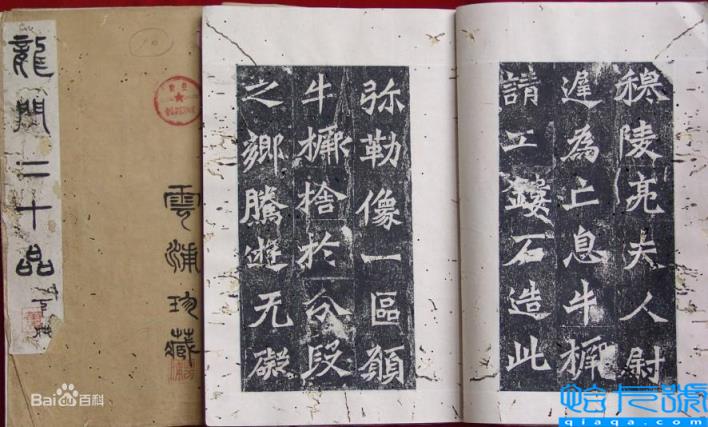 龍門二十品
雲浦珍藏
穆陵亮夫人尉
遲為亡息牛橛
請工鏤石造此
弥勒像一區願
牛橛捨於分段
之鄉騰遊无礙
Bai百科
哈卡號
qiaqa.com